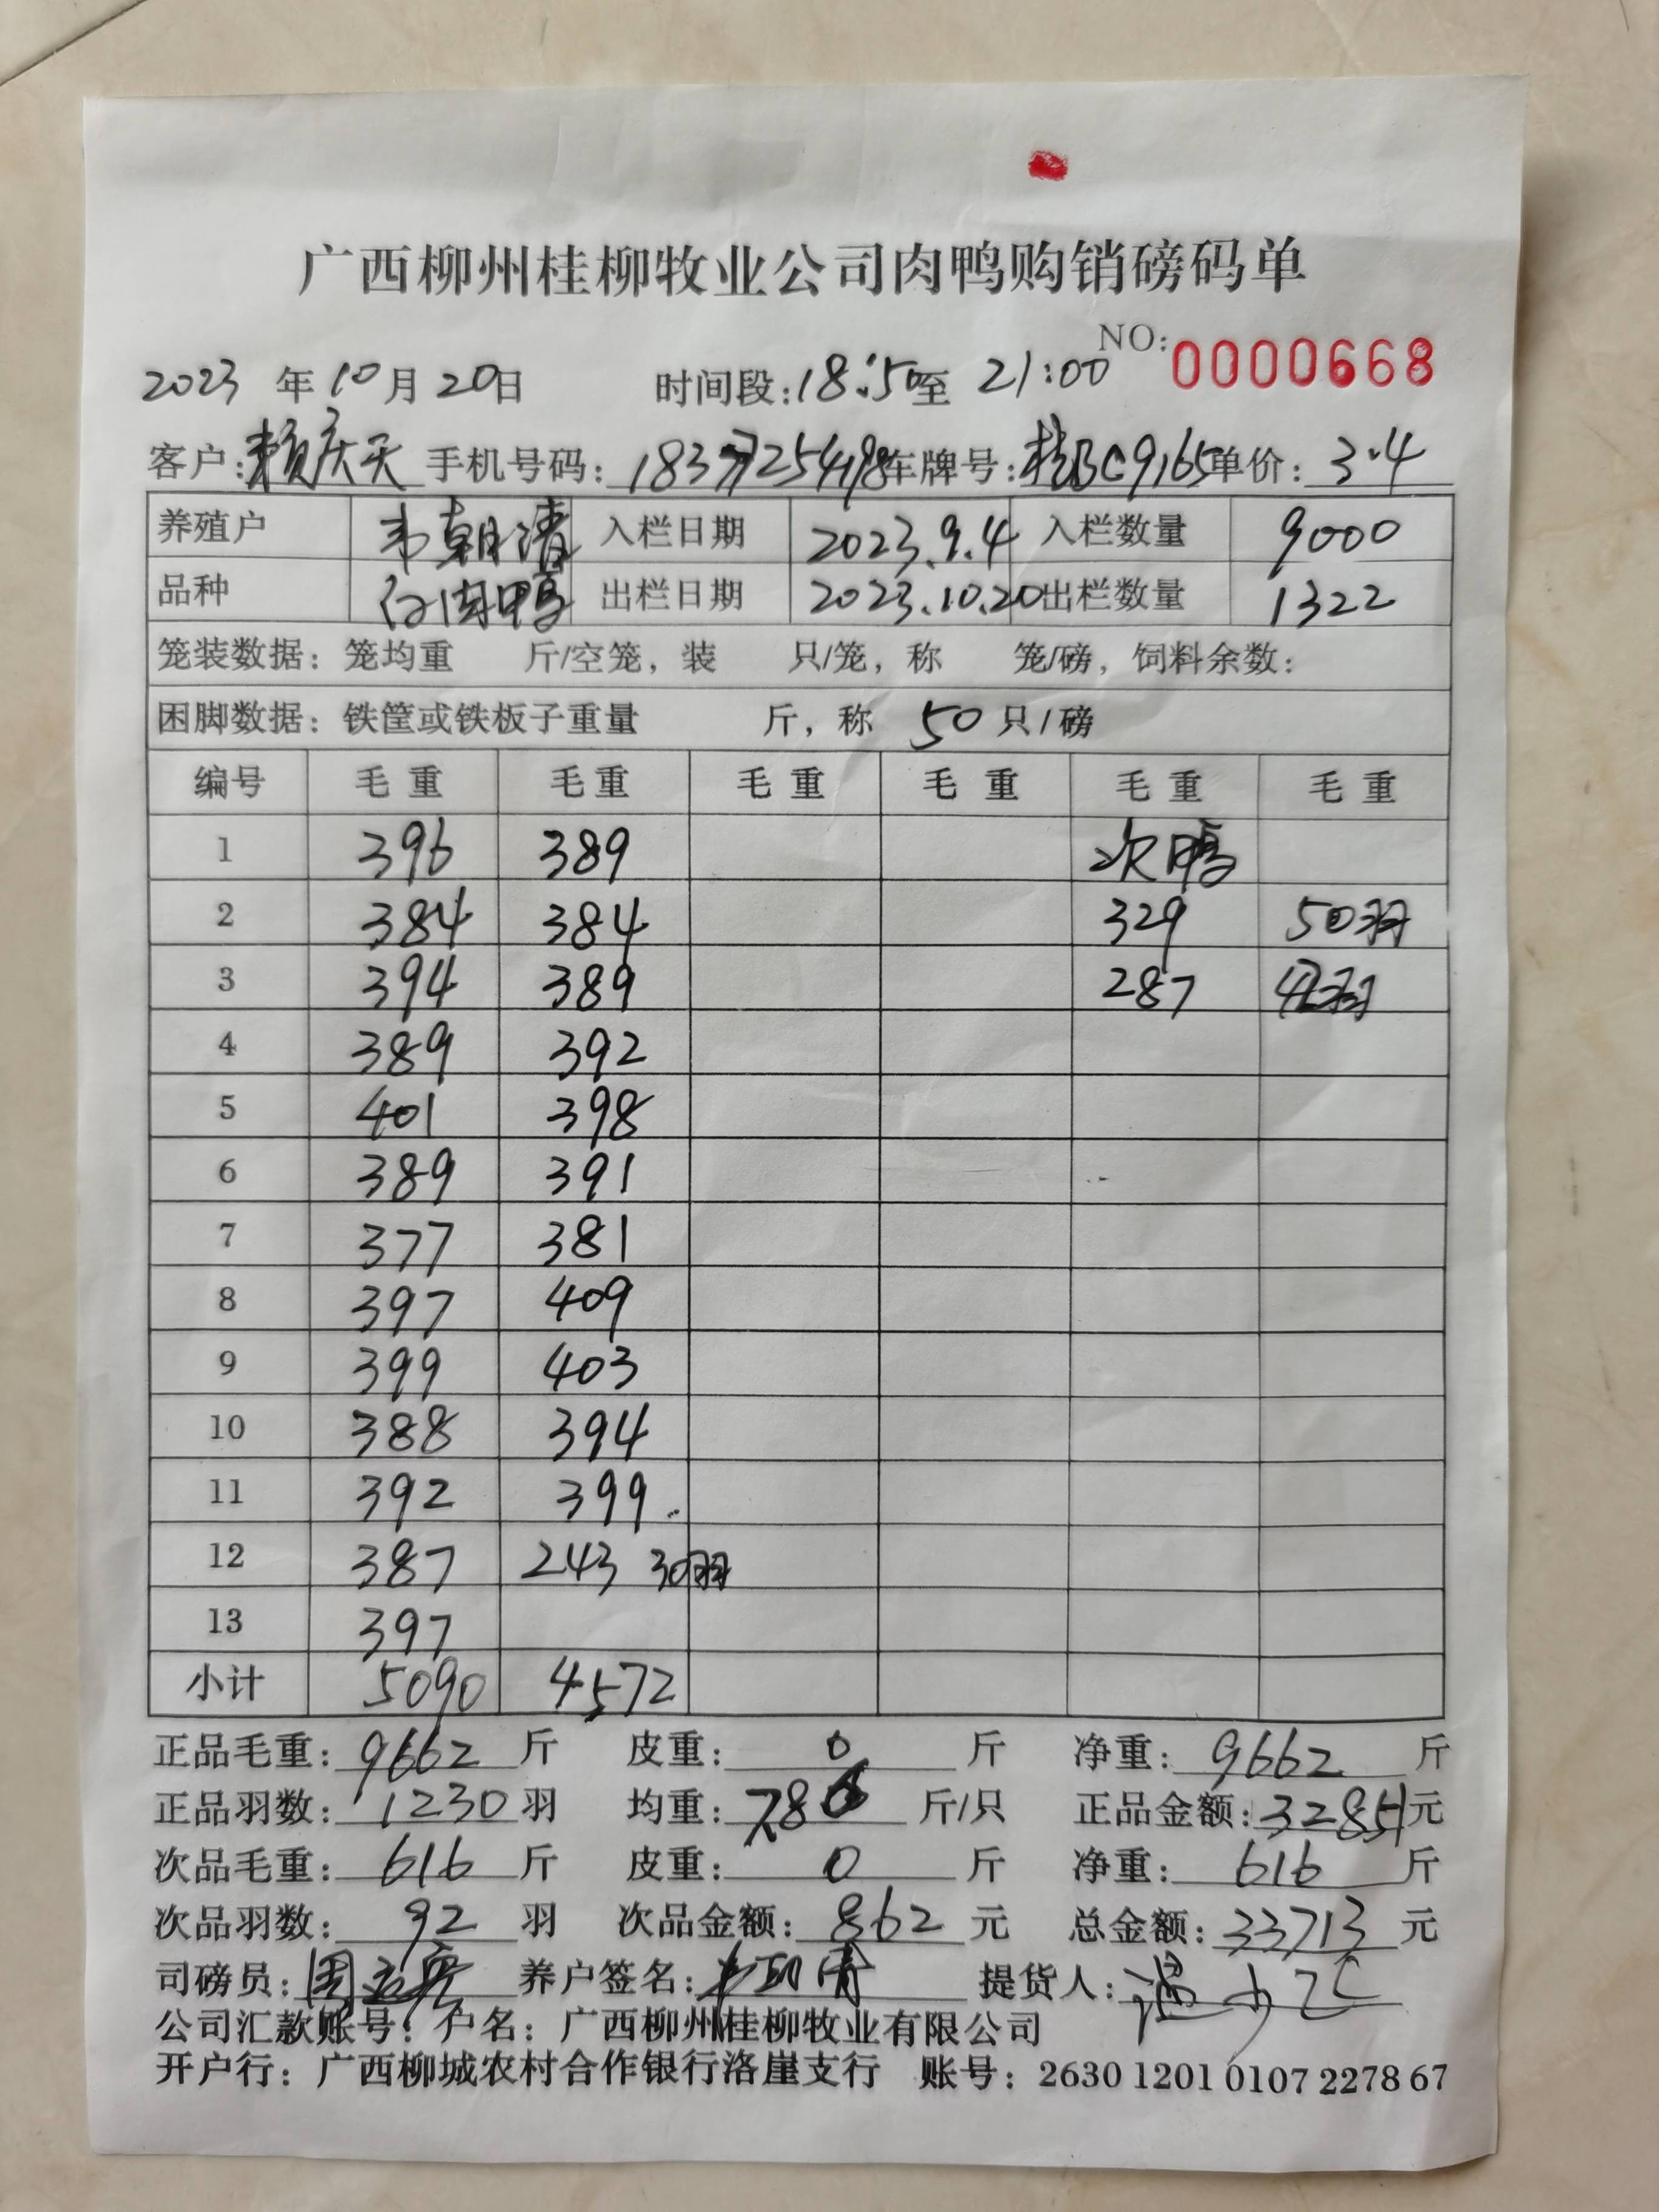 广西柳州桂柳牧业公司肉鸭购销磅码单
NO: 0000668
2023 年 10 月 20 日 时间段: 18:50 至 21:00
客户: 赖庆天 手机号码: 车牌号: 桂BC9165 单价: 3.4
养殖户 韦朝清 入栏日期 2023.9.4 入栏数量 9000
品种 白肉鸭 出栏日期 2023.10.20 出栏数量 1322
笼装数据: 笼均重 斤/空笼, 装 只/笼, 称 笼/磅, 饲料余数:
困脚数据: 铁筐或铁板子重量 斤, 称 50 只/磅
编号 毛重 毛重 毛重 毛重 毛重 毛重
1 396 389 次鸭
2 384 384 329 50羽
3 394 389 287 42羽
4 389 392
5 401 398
6 389 391
7 377 381
8 397 409
9 399 403
10 388 394
11 392 399
12 387 243 30羽
13 397
小计 5090 4572
正品毛重: 9662 斤 皮重: 0 斤 净重: 9662 斤
正品羽数: 1230 羽 均重: 斤/只 正品金额: 32851 元
次品毛重: 616 斤 皮重: 0 斤 净重: 616 斤
次品羽数: 92 羽 次品金额: 862 元 总金额: 33713 元
司磅员: 养户签名: 提货人:
公司汇款账号: 户名: 广西柳州桂柳牧业有限公司
开户行: 广西柳城农村合作银行洛崖支行 账号: 2630 1201 0107 2278 67